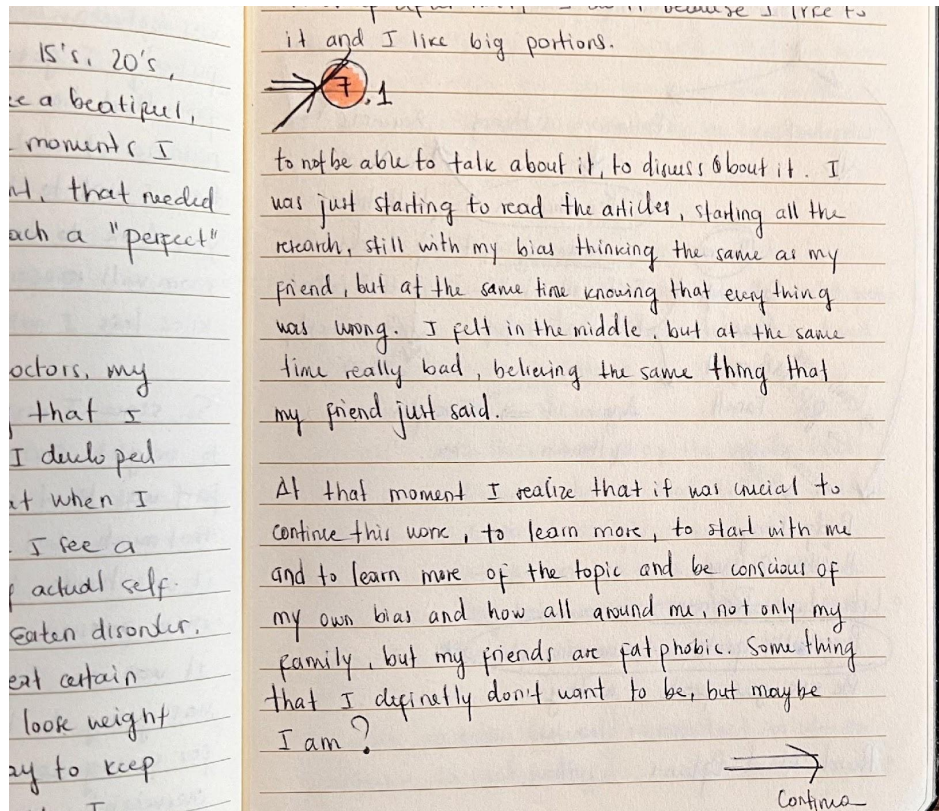 15's, 20's,
a beatiful,
moments I
that needed
a "perfect"
my
that I
I
when I
I see a
actual self.
Eaten disorder.
certain
loose weight
to keep
I
because I like to
it and I like big portions.
7.1
to not be able to talk about it, to discuss about it. I
was just starting to read the articles, starting all the
research, still with my bias thinking the same as my
friend, but at the same time knowing that everything
was wrong. I felt in the middle, but at the same
time really bad, believing the same thing that
my friend just said.
At that moment I realize that it was crucial to
continue this work, to learn more, to start with me
and to learn more of the topic and be conscious of
my own bias and how all around me not only my
family, but my friends are fatphobic. Something
that I definetly don't want to be, but maybe
I am?
Continua